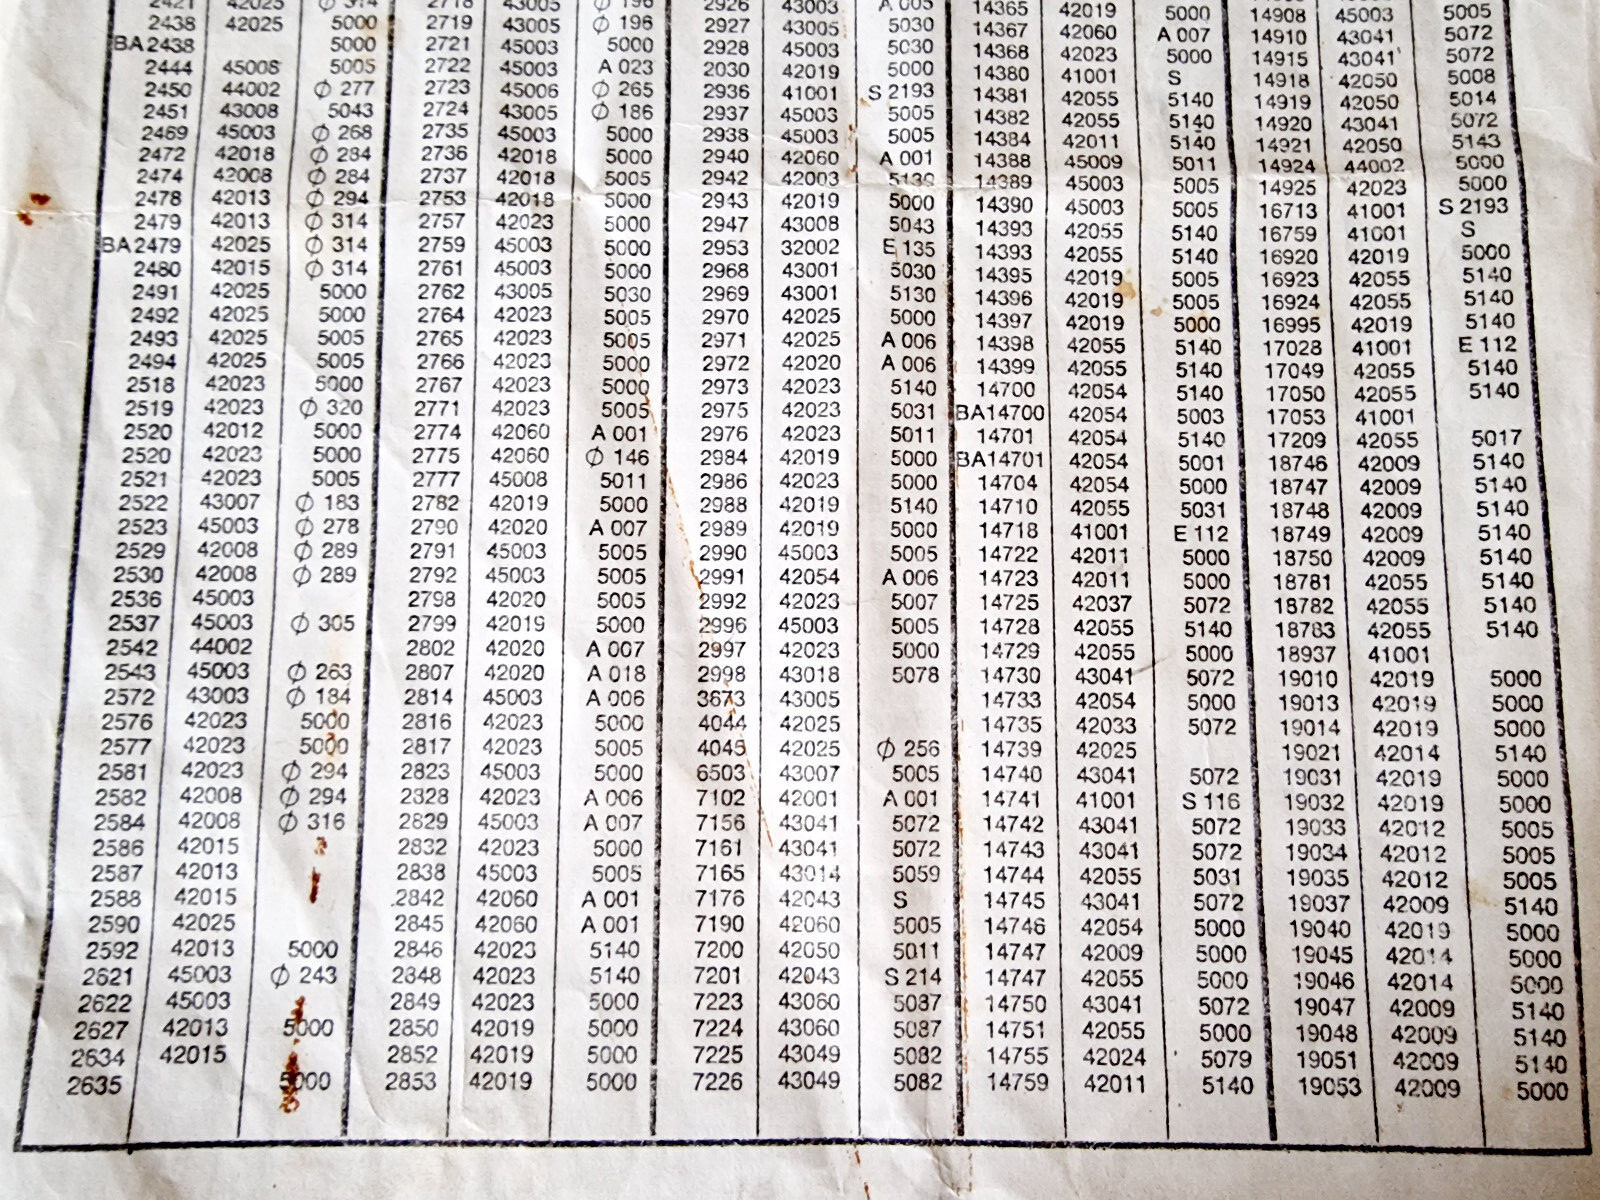 2421 42025 Ø 314 2718 43005 Ø 196 2926 43003 A 005 14365 42019 5000 14908 45003 5005
2438 42025 5000 2719 43005 Ø 196 2927 43005 5030 14367 42060 A 007 14910 43041 5072
BA2438 5000 2721 45003 5000 2928 45003 5030 14368 42023 5000 14915 43041 5072
2444 45008 5005 2722 45003 A 023 2030 42019 5000 14380 41001 S 14918 42050 5008
2450 44002 Ø 277 2723 45006 Ø 265 2936 41001 S 2193 14381 42055 5140 14919 42050 5014
2451 43008 5043 2724 43005 Ø 186 2937 45003 5005 14382 42055 5140 14920 43041 5072
2469 45003 Ø 268 2735 45003 5000 2938 45003 5005 14384 42011 5140 14921 42050 5143
2472 42018 Ø 284 2736 42018 5000 2940 42060 A 001 14388 45009 5011 14924 44002 5000
2474 42008 Ø 284 2737 42018 5005 2942 42003 5130 14389 45003 5005 14925 42023 5000
2478 42013 Ø 294 2753 42018 5000 2943 42019 5000 14390 45003 5005 16713 41001 S 2193
2479 42013 Ø 314 2757 42023 5000 2947 43008 5043 14393 42055 5140 16759 41001 S
BA2479 42025 Ø 314 2759 45003 5000 2953 32002 E 135 14393 42055 5140 16920 42019 5000
2480 42015 Ø 314 2761 45003 5000 2968 43001 5030 14395 42019 5005 16923 42055 5140
2491 42025 5000 2762 43005 5030 2969 43001 5130 14396 42019 5005 16924 42055 5140
2492 42025 5000 2764 42023 5005 2970 42025 5000 14397 42019 5000 16995 42019 5140
2493 42025 5005 2765 42023 5005 2971 42025 A 006 14398 42055 5140 17028 41001 E 112
2494 42025 5005 2766 42023 5000 2972 42020 A 006 14399 42055 5140 17049 42055 5140
2518 42023 5000 2767 42023 5000 2973 42023 5140 14700 42054 5140 17050 42055 5140
2519 42023 Ø 320 2771 42023 5005 2975 42023 5031 BA14700 42054 5003 17053 41001
2520 42012 5000 2774 42060 A 001 2976 42023 5011 14701 42054 5140 17209 42055 5017
2520 42023 5000 2775 42060 Ø 146 2984 42019 5000 BA14701 42054 5001 18746 42009 5140
2521 42023 5005 2777 45008 5011 2986 42023 5000 14704 42054 5000 18747 42009 5140
2522 43007 Ø 183 2782 42019 5000 2988 42019 5140 14710 42055 5031 18748 42009 5140
2523 45003 Ø 278 2790 42020 A 007 2989 42019 5000 14718 41001 E 112 18749 42009 5140
2529 42008 Ø 289 2791 45003 5005 2990 45003 5005 14722 42011 5000 18750 42009 5140
2530 42008 Ø 289 2792 45003 5005 2991 42054 A 006 14723 42011 5000 18781 42055 5140
2536 45003 2798 42020 5005 2992 42023 5007 14725 42037 5072 18782 42055 5140
2537 45003 Ø 305 2799 42019 5000 2996 45003 5005 14728 42055 5140 18783 42055 5140
2542 44002 2802 42020 A 007 2997 42023 5000 14729 42055 5000 18937 41001
2543 45003 Ø 263 2807 42020 A 018 2998 43018 5078 14730 43041 5072 19010 42019 5000
2572 43003 Ø 184 2814 45003 A 006 3673 43005 14733 42054 5000 19013 42019 5000
2576 42023 5000 2816 42023 5000 4044 42025 14735 42033 5072 19014 42019 5000
2577 42023 5000 2817 42023 5005 4045 42025 Ø 256 14739 42025 19021 42014 5140
2581 42023 Ø 294 2823 45003 5000 6503 43007 5005 14740 43041 5072 19031 42019 5000
2582 42008 Ø 294 2828 42023 A 006 7102 42001 A 001 14741 41001 S 116 19032 42019 5000
2584 42008 Ø 316 2829 45003 A 007 7156 43041 5072 14742 43041 5072 19033 42012 5005
2586 42015 2832 42023 5000 7161 43041 5072 14743 43041 5072 19034 42012 5005
2587 42013 2838 45003 5005 7165 43014 5059 14744 42055 5031 19035 42012 5005
2588 42015 2842 42060 A 001 7176 42043 S 14745 43041 5072 19037 42009 5140
2590 42025 2845 42060 A 001 7190 42060 5005 14746 42054 5000 19040 42019 5000
2592 42013 5000 2846 42023 5140 7200 42050 5011 14747 42009 5000 19045 42014 5000
2621 45003 Ø 243 2848 42023 5140 7201 42043 S 214 14747 42055 5000 19046 42014 5000
2622 45003 2849 42023 5000 7223 43060 5087 14750 43041 5072 19047 42009 5140
2627 42013 5000 2850 42019 5000 7224 43060 5087 14751 42055 5000 19048 42009 5140
2634 42015 2852 42019 5000 7225 43049 5082 14755 42024 5079 19051 42009 5140
2635 5000 2853 42019 5000 7226 43049 5082 14759 42011 5140 19053 42009 5000